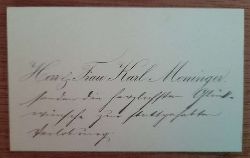 Herr & Frau Karl Moninger
senden die herzlichsten Glück-
wünsche zur stattgehabten
Verlobung.